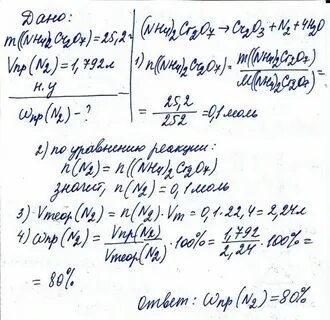 Дано:
m((NH4)2Cr2O7)=25,2г
Vпр(N2)=1,792л
н.у
ωпр(N2)-?
(NH4)2Cr2O7→Cr2O3+N2+4H2O
1) n((NH4)2Cr2O7)=m((NH4)2Cr2O7)/M((NH4)2Cr2O7)=
=25,2/252=0,1моль
2) по уравнению реакции:
n(N2)=n((NH4)2Cr2O7)
значит, n(N2)=0,1моль
3) Vтеор(N2)=n(N2)·Vm=0,1·22,4=2,24л
4) ωпр(N2)=Vпр(N2)/Vтеор(N2)·100%=1,792/2,24·100%=
=80%
ответ: ωпр(N2)=80%